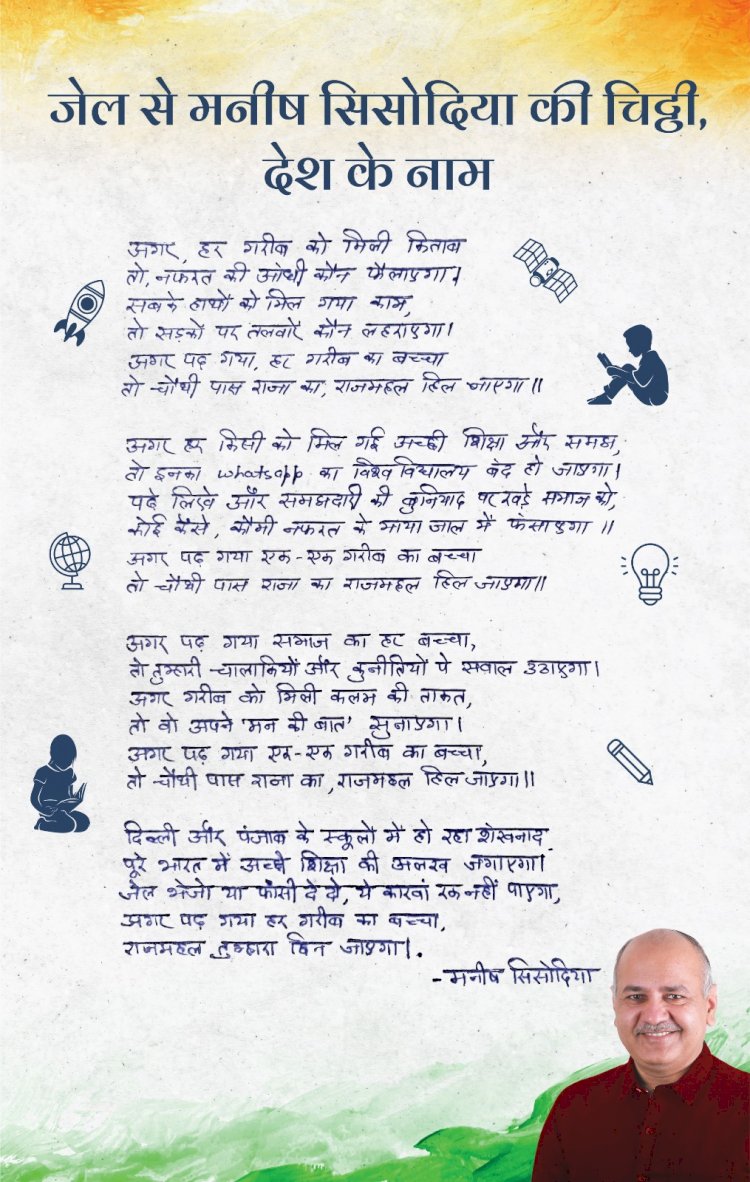 जेल से मनीष सिसोदिया की चिट्ठी,
देश के नाम
अगर, हर गरीब को मिली किताब
तो, नफरत की आंधी कौन फैलाएगा।
सबके हाथों को मिल गया काम,
तो सड़कों पर तलवारें कौन लहराएगा।
अगर पढ़ गया, हर गरीब का बच्चा
तो चौथी पास राजा का, राजमहल हिल जाएगा॥
अगर हर किसी को मिल गई अच्छी शिक्षा और समझ,
तो इनका whatsapp का विश्वविद्यालय बंद हो जाएगा।
पढ़े लिखे और समझदारी की बुनियाद पर खड़े समाज को,
कोई कैसे, कौमी नफरत के माया जाल में फंसाएगा ॥
अगर पढ़ गया एक-एक गरीब का बच्चा
तो चौथी पास राजा का राजमहल हिल जाएगा॥
अगर पढ़ गया समाज का हर बच्चा,
तो तुम्हारी चालाकियों और कुनीतियों पे सवाल उठाएगा।
अगर गरीब को मिली कलम की ताकत,
तो वो अपने 'मन की बात' सुनाएगा।
अगर पढ़ गया एक-एक गरीब का बच्चा,
तो चौथी पास राजा का, राजमहल हिल जाएगा॥
दिल्ली और पंजाब के स्कूलों में हो रहा शंखनाद
पूरे भारत में अच्छी शिक्षा की अलख जगाएगा।
जेल भेजो या फाँसी दे दो, ये कारवां रुक नहीं पाएगा,
अगर पढ़ गया हर गरीब का बच्चा,
राजमहल तुम्हारा हिल जाएगा।.
- मनीष सिसोदिया